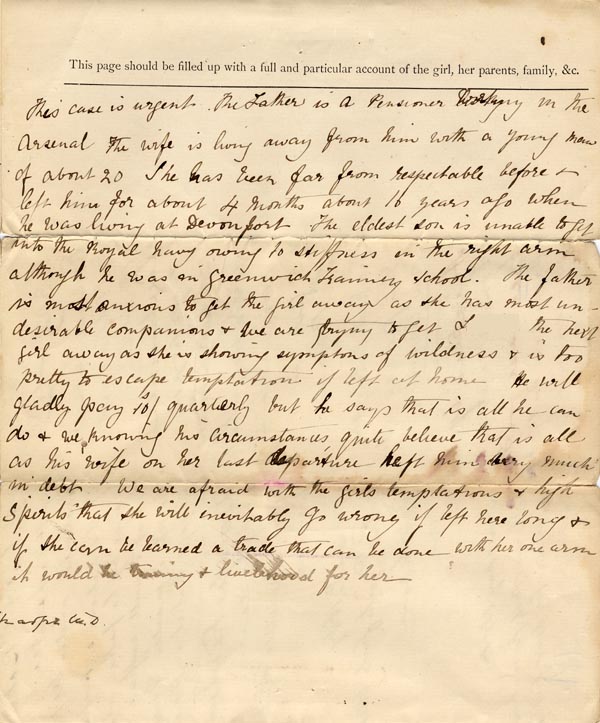 This page should be filled up with a full and particular account of the girl, her parents, family, &c.
This case is urgent. The Father is a Pensioner working in the
Arsenal the wife is living away from him with a young man
of about 20 She has been far from respectable before &
left him for about 4 months about 10 years ago when
he was living at Devonport The eldest son is unable to get
into the Royal Navy owing to stiffness in the right arm
although he was in Greenwich Training School. The father
is most anxious to get the girl away as she has most un-
desirable companions & we are trying to get L the next
girl away as she is showing symptons of wildness & is too
pretty to escape temptation if left at home He will
gladly pay 10/ quarterly but he says that is all he can
do & we knowing his circumstances quite believe that is all
as his wife on her last departure left him very much
in debt We are afraid with the girls temptations & high
Spirits that she will inevitably go wrong if left here long &
if she can be learned a trade that can be done with her one arm
it would be & livelihood for her
M.D.